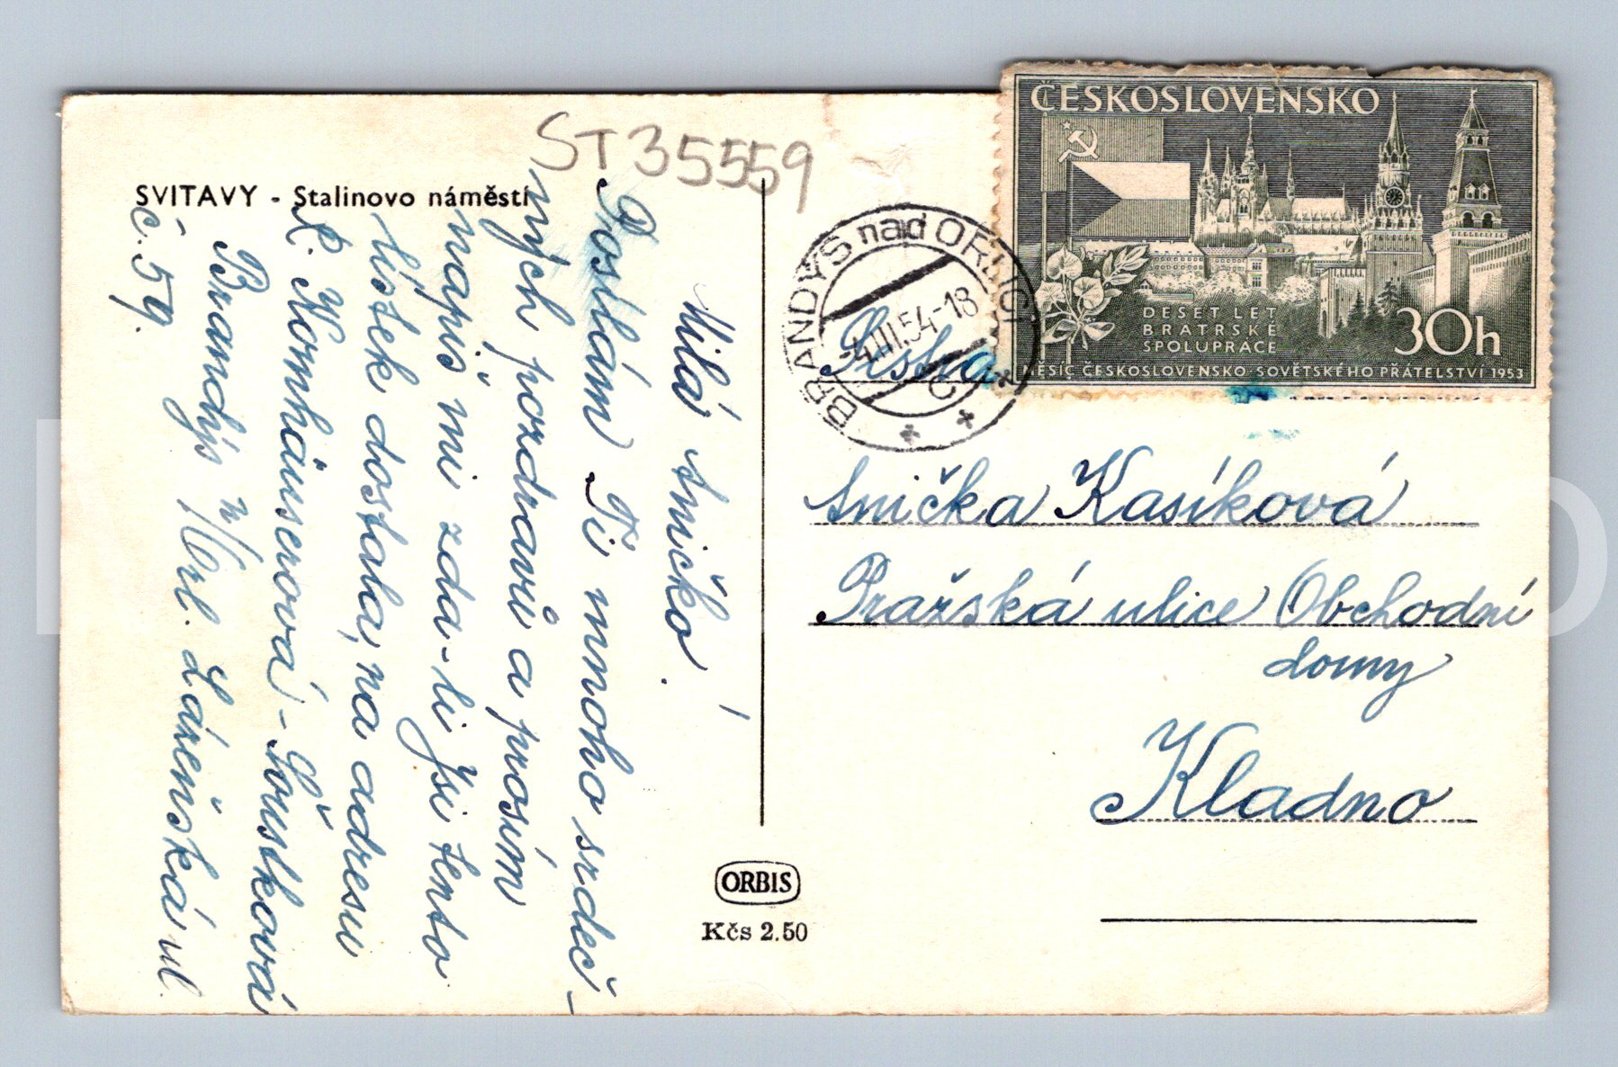 ST35559
SVITAVY - Stalinovo náměstí
Milá Aničko!
Posílám Ti mnoho srdeč-
ných pozdravů a prosím
napiš mi zda-li jsi tento
lístek dostala, na adresu
Nornháuserová - Šoustková
Brandýs n/Orl. Lázeňská ul.
č. 59.
ČESKOSLOVENSKO
DESET LET
BRATRSKÉ
SPOLUPRÁCE
30h
MĚSÍC ČESKOSLOVENSKO-SOVĚTSKÉHO PŘÁTELSTVÍ 1953
BRANDÝS nad ORLICÍ
-4.III.54-18
Anička Kasíková
Pražská ulice Obchodní
domy
Kladno
ORBIS
Kčs 2.50